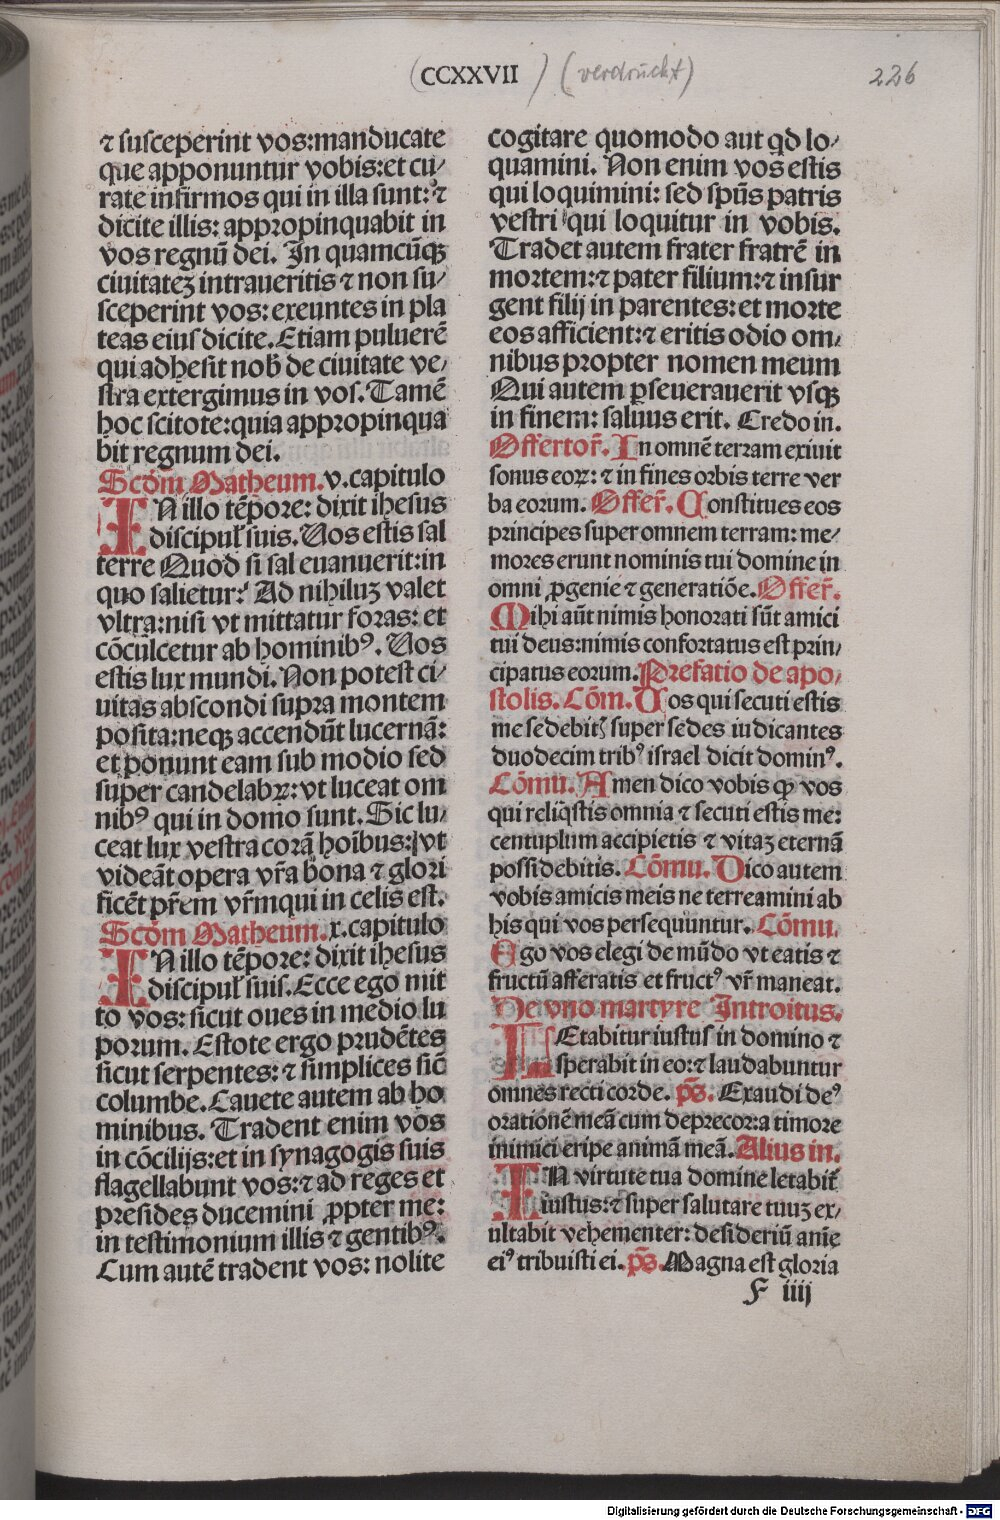 (CCXXVII) (verdruckt)
226
⁊ susceperint vos:manducate
que apponuntur vobis:et cu/
rate infirmos qui in illa sunt:⁊
dicite illis: appropinquabit in
vos regnū dei. In quamcūqꝫ
ciuitateꝫ intraueritis ⁊ non su/
sceperint vos: exeuntes in pla
teas eius dicite. Etiam puluerē
qui adhesit nob̄ de ciuitate ve/
stra extergimus in vos. Tamē
hoc scitote: quia appropinqua
bit regnum dei.
Scd̄m Matheum. v. capitulo
IN illo tēpore: dixit ihesus
discipul' suis. Vos estis sal
terre Quod si sal euanuerit: in
quo salietur: Ad nihiluꝫ valet
vltra: nisi vt mittatur foras: et
cōculcetur ab hominibꝰ. Vos
estis lux mundi. Non potest ci/
uitas abscondi supra montem
posita: neqꝫ accendūt lucernā:
et ponunt eam sub modio sed
super candelabꝝ: vt luceat om
nibꝰ qui in domo sunt. Sic lu/
ceat lux vestra corā hoībus: vt
videāt opera vr̄a bona ⁊ glori
ficēt pr̄em vr̄m qui in celis est.
Scd̄m Matheum. x. capitulo
IN illo tēpore: dixit ihesus
discipul' suis. Ecce ego mit
to vos: sicut oues in medio lu
porum. Estote ergo prudētes
sicut serpentes: ⁊ simplices sic̄
columbe. Cauete autem ab ho
minibus. Tradent enim vos
in cōcilijs: et in synagogis suis
flagellabunt vos: ⁊ ad reges et
presides ducemini ꝓpter me:
in testimonium illis ⁊ gentibꝰ.
Cum autē tradent vos: nolite
cogitare quomodo aut qd lo/
quamini. Non enim vos estis
qui loquimini: sed spūs patris
vestri qui loquitur in vobis.
Tradet autem frater fratrē in
mortem: ⁊ pater filium: ⁊ insur
gent filij in parentes: et morte
eos afficient: ⁊ eritis odio om/
nibus propter nomen meum
Qui autem ꝑseuerauerit vsqꝫ
in finem: saluus erit. Credo in.
Offertor̄. In omnē terram exiuit
sonus eoꝝ: ⁊ in fines orbis terre ver
ba eorum. Offer̄. Constitues eos
principes super omnem terram: me/
mores erunt nominis tui domine in
omni ꝓgenie ⁊ generatiōe. Offer̄.
Mihi aūt nimis honorati sūt amici
tui deus: nimis confortatus est prin/
cipatus eorum. Prefatio de apo/
stolis. Cōm. Vos qui secuti estis
me sedebit᷑ super sedes iudicantes
duodecim tribꝰ israel dicit dominꝰ.
Cōmu. Amen dico vobis ꝙ vos
qui reliqstis omnia ⁊ secuti estis me:
centuplum accipietis ⁊ vitaꝫ eternā
possidebitis. Cōmu. Dico autem
vobis amicis meis ne terreamini ab
his qui vos persequuntur. Cōmu.
Ego vos elegi de mūdo vt eatis ⁊
fructū afferatis et fructꝰ vr̄ maneat.
De vno martyre Introitus.
LEtabitur iustus in domino ⁊
sperabit in eo: ⁊ laudabuntur
omnes recti corde. ps̄. Exaudi deꝰ
orationē meā cum deprecor: a timore
inimici eripe animā meā. Alius in.
IN virtute tua domine letabit᷑
iustus: ⁊ super salutare tuuꝫ ex/
ultabit vehementer: desideriū anīe
eiꝰ tribuisti ei. ps̄. Magna est gloria
F iiij
Digitalisierung gefördert durch die Deutsche Forschungsgemeinschaft - DFG